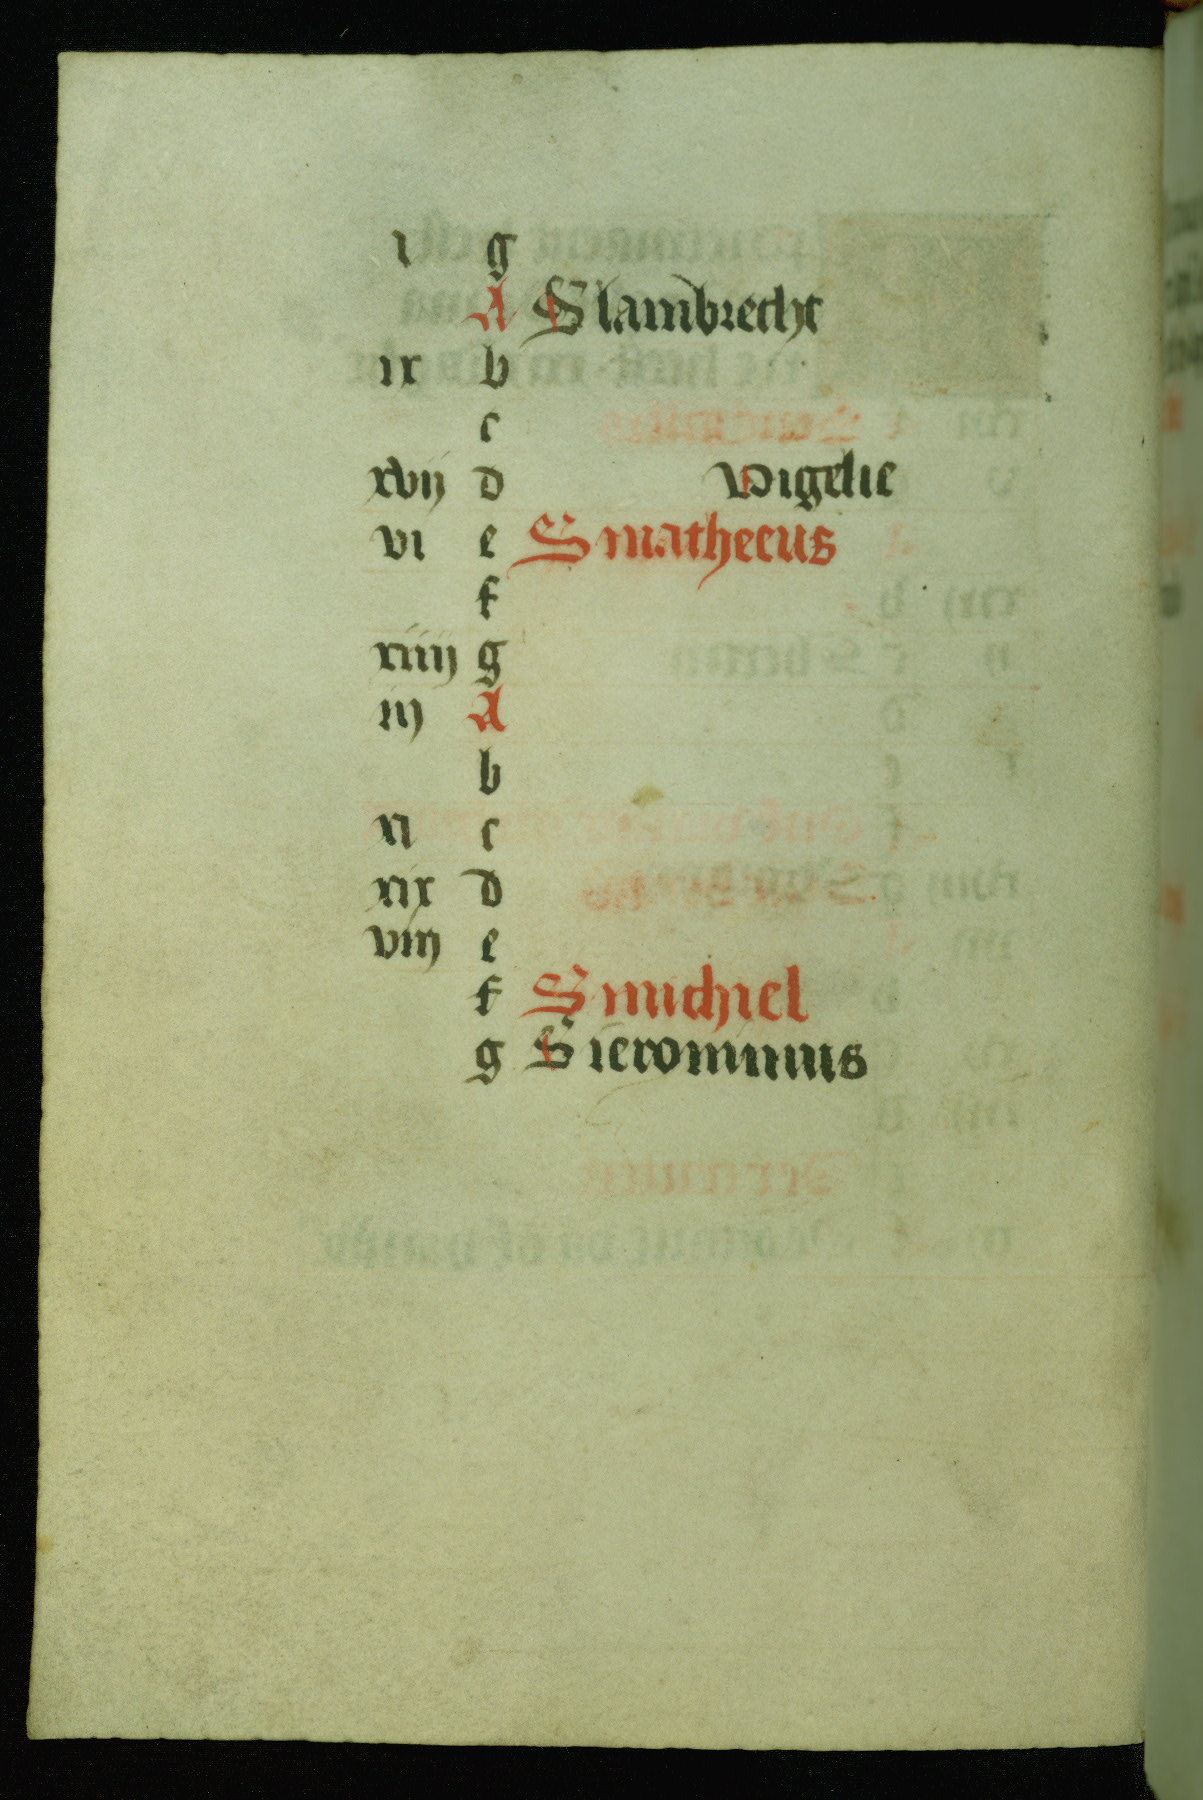 i g
A S lambrecht
ix b
c
xvij d Vigelie
vi e S matheeus
f
xiiij g
iij A
b
xi c
xix d
viij e
f S michiel
g S ieronimus